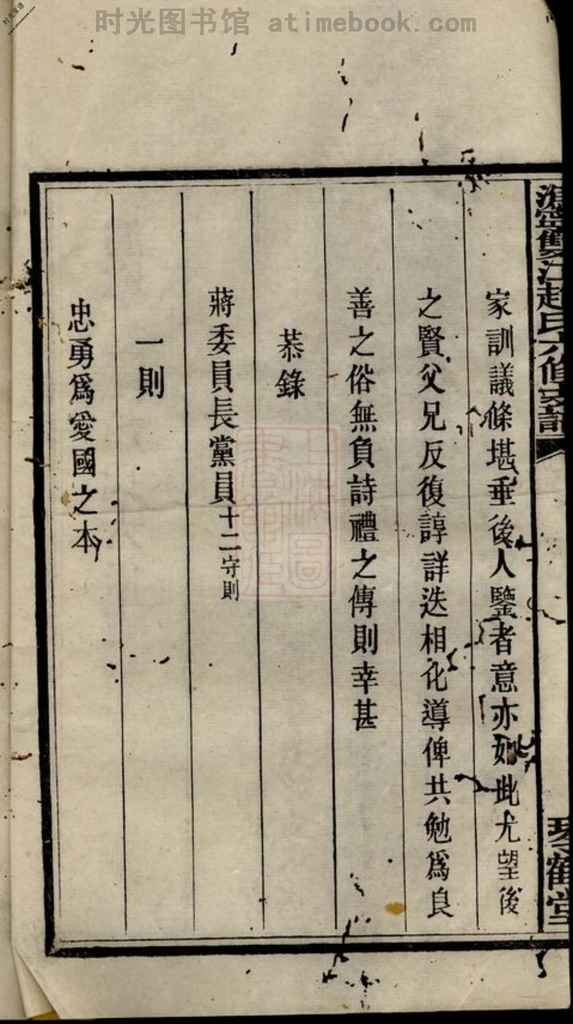 时光图书馆 atimebook.com
雙江趙氏六修宗譜
琴鶴堂
家訓議條堪垂後人鑒者意亦如此尤望後
之賢父兄反復諄詳迭相化導俾共勉為良
善之俗無負詩禮之傳則幸甚
恭錄
蔣委員長黨員十二守則
一則
忠勇為愛國之本